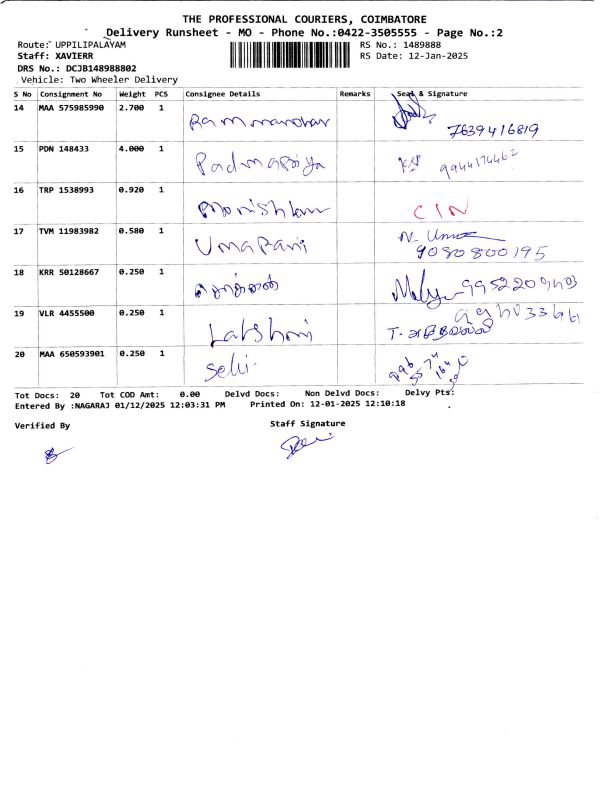 THE PROFESSIONAL COURIERS, COIMBATORE
Delivery Runsheet - MO - Phone No.:0422-3505555 - Page No.:2
Route: UPPILIPALAYAM
RS No.: 1489888
Staff: XAVIERR
RS Date: 12-Jan-2025
DRS No.: DCJB148988802
Vehicle: Two Wheeler Delivery
S No Consignment No Weight PCS Consignee Details Remarks Seal & Signature
14 MAA 575985990 2.700 1 Rammanohar
7639416819
15 PDN 148433 4.000 1 Padmapriya 9944174462
16 TRP 1538993 0.920 1 CIN
17 TVM 11983982 0.580 1 Uma Rani N. Uma
9080800195
18 KRR 50128667 0.250 1
19 VLR 4455500 0.250 1 Lakshmi
20 MAA 650593901 0.250 1 Selvi
Tot Docs: 20 Tot COD Amt: 0.00 Delvd Docs: Non Delvd Docs: Delvy Pts:
Entered By :NAGARAJ 01/12/2025 12:03:31 PM Printed On: 12-01-2025 12:10:18
Verified By Staff Signature